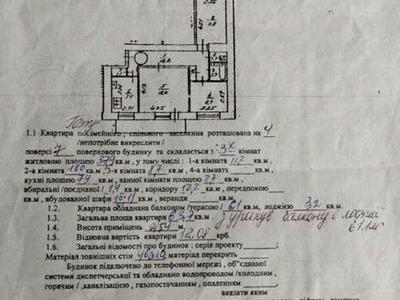 1.1 Квартира посімейного, спільного заселення розташована на 4
/непотрібне викреслити/
поверсі 7 поверхового будинку та складається з: 3х кімнат
житловою площею кв.м, у тому числі: 1-а кімната 11,2 кв.м,
2-а кімната 18,0 кв.м, 3-я кімната 8,7 кв.м, 4-а кімната кв.м,
кухні площею 7,4 кв.м, ванної кімнати площею 2,7 кв.м,
вбиральні /поєднаної/ 1,4 кв.м, коридору 12,2, передпокою
кв.м, вбудованої шафи кв.м, веранди кв.м.
1.2. Квартира обладнана балконом /терасою/ 6.1 кв.м, лоджією 3.2 кв.м.
1.3. Загальна площа квартири 63,7 кв.м. з урахув балкону і лоджії
61.1 м²
1.4. Висота приміщень 2.54 м.
1.5. Відновна вартість квартири крб.
1.6. Загальні відомості про будинок: серія проекту
Матеріал зовнішніх стін матеріал перекрить
Будинок підключено до телефонної мережі, об'єднаної
системи диспетчерської та обладнано водопроводом /холодним,
гарячим/, каналізацією, газопостачанням, опаленням
вказати яким